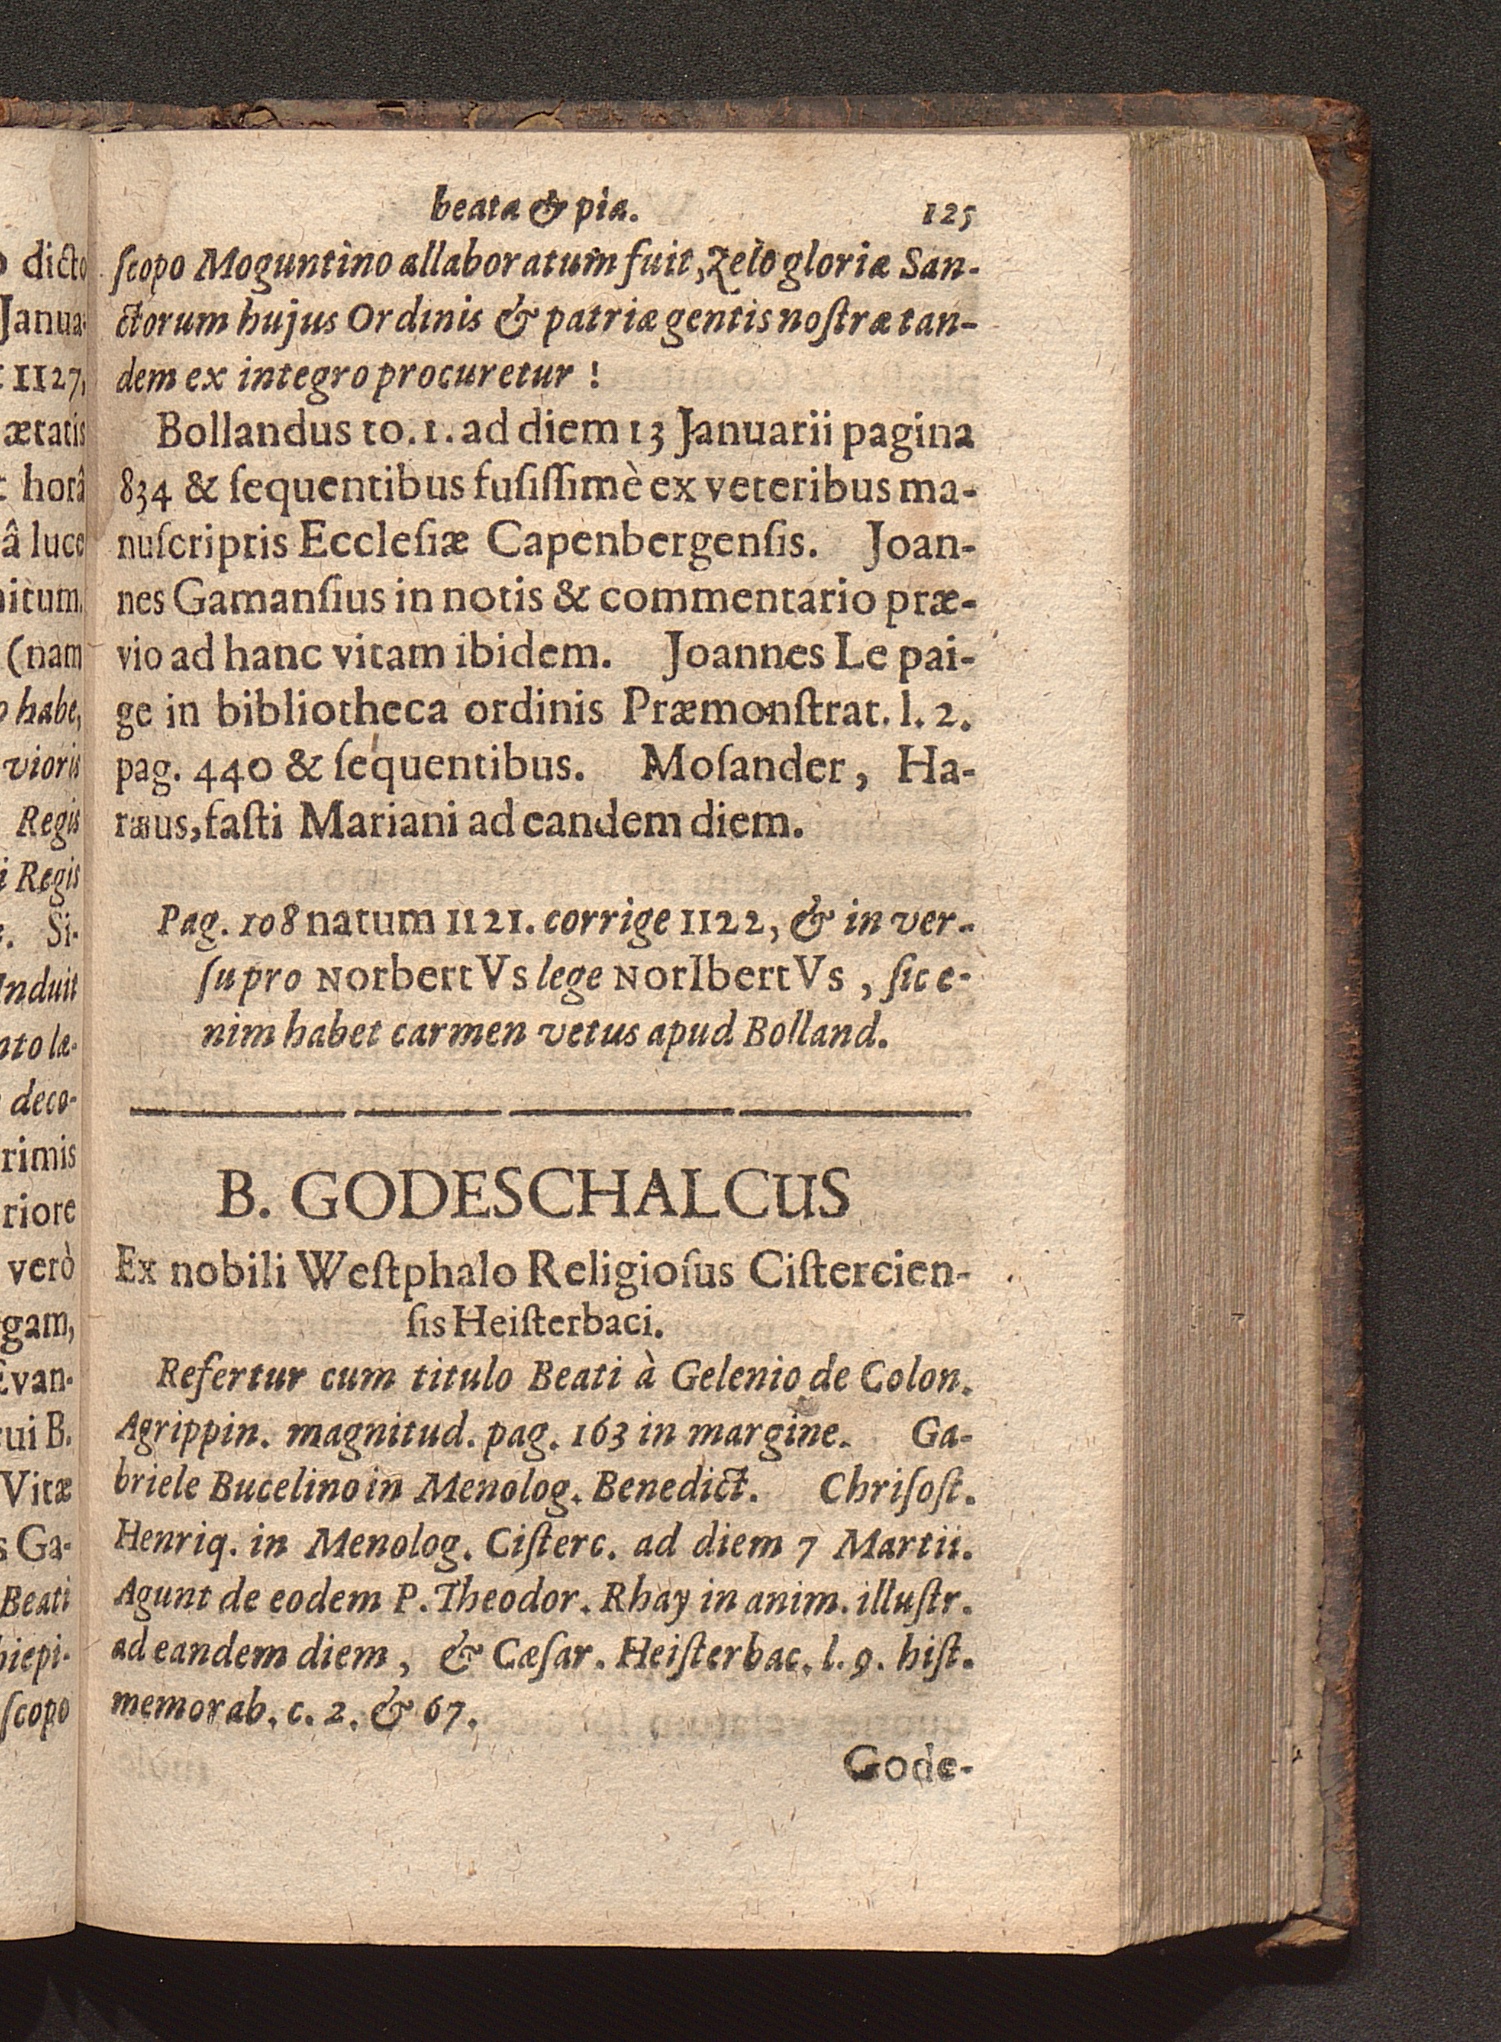 beata & pia. 125
ſcopo Moguntino allaboratum fuit, zelo gloriæ San-
ctorum hujus Ordinis & patriæ gentis noſtræ tan-
dem ex integro procuretur !
Bollandus to. 1. ad diem 13 Januarii pagina
834 & ſequentibus fuſiſſimè ex veteribus ma-
nuſcriptis Eccleſiæ Capenbergenſis. Joan-
nes Gamanſius in notis & commentario præ-
vio ad hanc vitam ibidem. Joannes Le pai-
ge in bibliotheca ordinis Præmonſtrat. l. 2.
pag. 440 & ſequentibus. Moſander, Ha-
ræus, faſti Mariani ad eandem diem.
Pag. 108 natum 1121. corrige 1122, & in ver-
ſu pro NorbertVs lege NorIbertVs, ſic e-
nim habet carmen vetus apud Bolland.
B. GODESCHALCUS
Ex nobili Weſtphalo Religioſus Ciſtercien-
ſis Heiſterbaci.
Refertur cum titulo Beati à Gelenio de Colon.
Agrippin. magnitud. pag. 163 in margine. Ga-
briele Bucelino in Menolog. Benedict. Chriſoſt.
Henriq. in Menolog. Ciſterc. ad diem 7 Martii.
Agunt de eodem P. Theodor. Rhay in anim. illuſtr.
ad eandem diem, & Cæſar. Heiſterbac. l. 9. hiſt.
memorab. c. 2. & 67.
Gode-
dicto
Janua-
1127,
ætatis
horâ
â luce
(nam
habe,
vioris
Regis
Regis
Si-
Induit
deco-
verò
Evan-
B.
Vitæ
Ga-
Beati
ſcopo